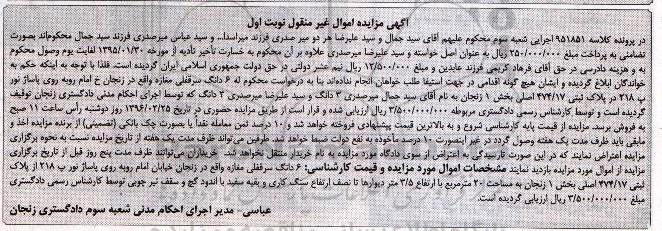 آگهی مزایده اموال غیر منقول نوبت اول
در پرونده کلاسه ۹۵۱۸۵۱ اجرایی شعبه سوم محکوم علیهم آقای سید جمال و سید علیرضا هر دو میر صدری فرزند میراسدا... و سید عباس میرصدری فرزند سید جمال محکوم‌اند بصورت
تضامنی به پرداخت مبلغ ۲۵۰/۰۰۰/۰۰۰ ریال به عنوان اصل خواسته و سید علیرضا میرصدری علاوه بر آن محکوم به خسارت تأخیر تأدیه از مورخه ۱۳۹۵/۰۱/۳۰ لغایت یوم وصول محکوم
به و هزینه دادرسی در حق آقای فرهاد کریمی فرزند عابدین و مبلغ ۱۲/۵۰۰/۰۰۰ ریال نیم عشر دولتی در حق دولت جمهوری اسلامی ایران گردیده است. فلذا با توجه به اینکه حکم به
خواندگان ابلاغ گردیده و ایشان هیچ گونه اقدامی در جهت استیفا طلب خواهان انجام نداده‌اند بنا به درخواست محکوم له ۶ دانگ سرقفلی مغازه واقع در زنجان خ امام روبه روی پاساژ نور
پ ۲۱۸ در پلاک ثبتی ۴۷۴/۱۷ اصلی بخش ۱ زنجان به نام آقای سید جمال میرصدری ۳ دانگ و سید علیرضا میرصدری ۳ دانگ که توسط اجرای احکام مدنی دادگستری زنجان توقیف
گردیده است و توسط کارشناس رسمی دادگستری مربوطه ۳/۵۰۰/۰۰۰/۰۰۰ ریال ارزیابی شده و قرار است از طریق مزایده حضوری در تاریخ ۱۳۹۶/۰۲/۲۵ روز دوشنبه رأس ساعت ۱۱ صبح
به فروش برسد. مزایده از قیمت پایه کارشناسی شروع و به بالاترین قیمت پیشنهادی فروخته خواهد شد و ۱۰ درصد ثمن معامله نقداً یا بصورت چک بانکی (تضمینی) از برنده مزایده اخذ و
مابقی باید ظرف مدت یک هفته وصول گردد در غیر اینصورت ۱۰ درصد مأخوذه به نفع دولت ضبط خواهد شد. طرفین می‌تواند ظرف مدت یک هفته از تاریخ مزایده نسبت به نحوه برگزاری
مزایده اعتراض نمایند که در این صورت تا رسیدگی به اعتراض از سوی دادگاه مورد مزایده به نام خریدار منتقل نخواهد شد. خریداران می‌توانند ظرف مدت پنج روز قبل از تاریخ برگزاری
مزایده از اموال مورد مزایده بازدید نمایند مشخصات اموال مورد مزایده و قیمت کارشناسی: ۶ دانگ سرقفلی مغازه واقع در زنجان خیابان امام روبه روی پاساژ نور پ ۲۱۸ از پلاک
ثبتی ۴۷۴/۱۷ اصلی بخش ۱ زنجان به مساحت ۲۰ مترمربع با ارتفاع ۳/۵ متر دیوارها تا نصف ارتفاع سنگ کاری و بقیه سفید با اندود گچ و سقف تیر چوبی توسط کارشناس رسمی دادگستری
۳/۵۰۰/۰۰۰/۰۰۰ ریال ارزیابی گردیده است.
عباسی- مدیر اجرای احکام مدنی شعبه سوم دادگستری زنجان